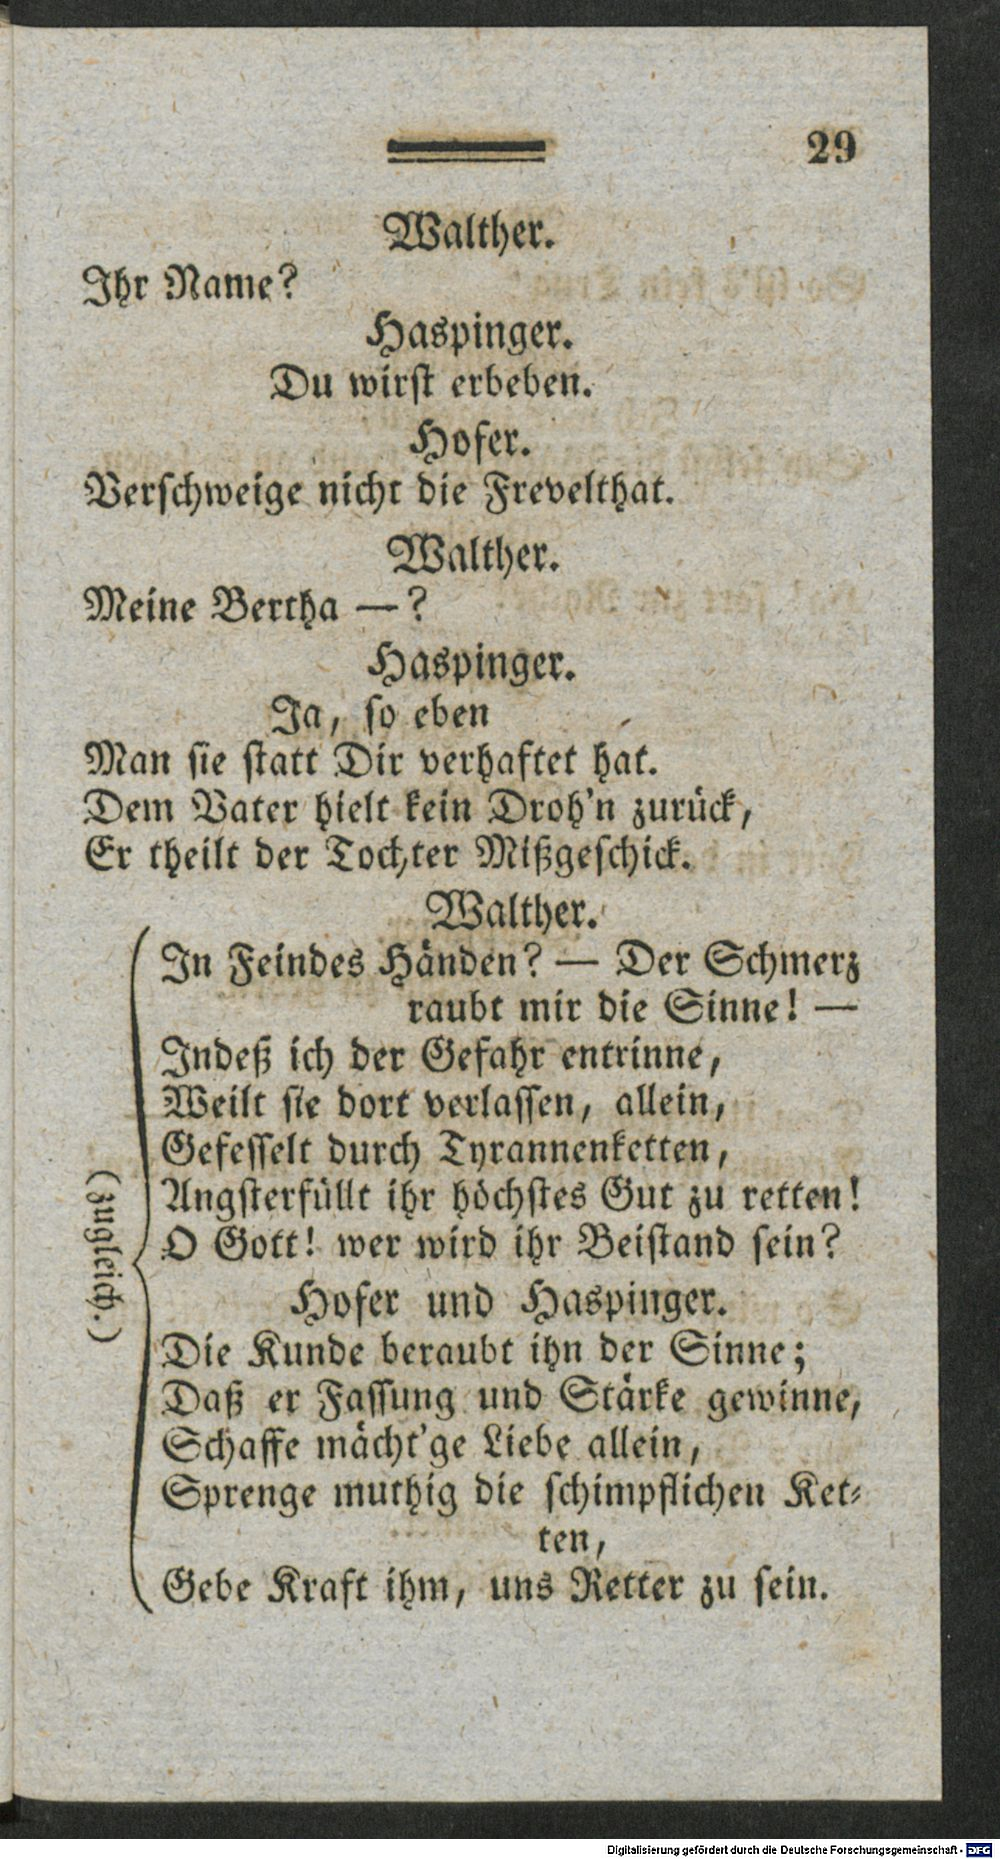 29
Walther.
Ihr Name?
Haspinger.
Du wirst erbeben.
Hofer.
Verschweige nicht die Frevelthat.
Walther.
Meine Bertha — ?
Haspinger.
Ja, so eben
Man sie statt Dir verhaftet hat.
Dem Vater hielt kein Droh'n zurück,
Er theilt der Tochter Mißgeschick.
Walther.
In Feindes Händen? — Der Schmerz
raubt mir die Sinne! —
Indeß ich der Gefahr entrinne,
Weilt sie dort verlassen, allein,
Gefesselt durch Tyrannenketten,
Angsterfüllt ihr höchstes Gut zu retten!
O Gott! wer wird ihr Beistand sein?
(Zugleich.)
Hofer und Haspinger.
Die Kunde beraubt ihn der Sinne;
Daß er Fassung und Stärke gewinne,
Schaffe mächt'ge Liebe allein,
Sprenge muthig die schimpflichen Ket-
ten,
Gebe Kraft ihm, uns Retter zu sein.
Digitalisierung gefördert durch die Deutsche Forschungsgemeinschaft - DFG